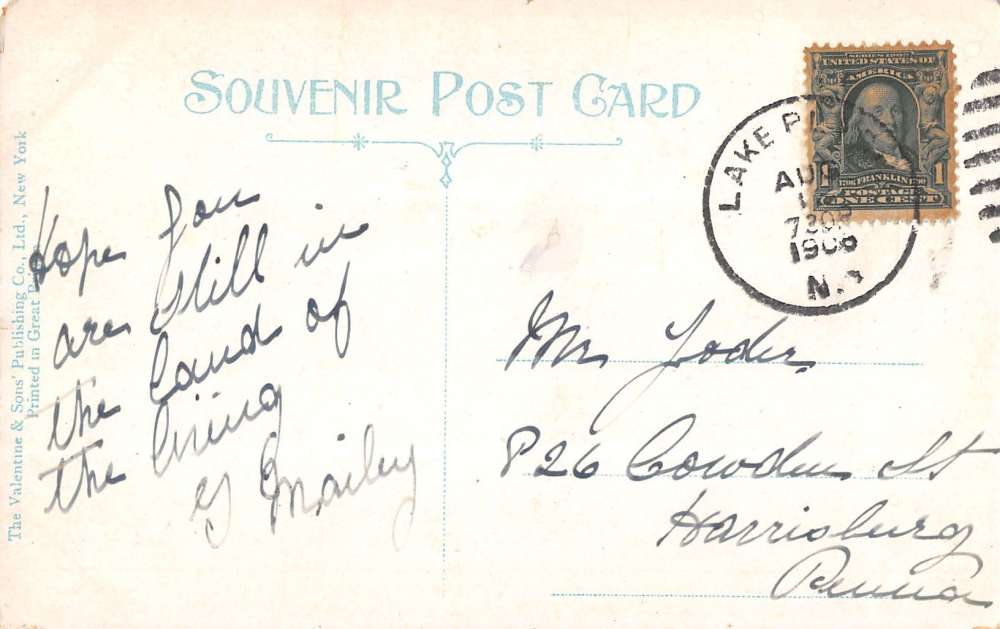 SOUVENIR POST CARD
The Valentine & Sons' Publishing Co., Ltd., New York
Printed in Great
Hope you
are still in
the land of
the living
G Mailey
SERIES 1902
UNITED STATES OF
AMERICA
FRANKLIN
1 POSTAGE 1
ONE CENT
LAKE
AUG
1908
N.
Mr Yoder
26 Cowden St
Harrisburg
Penna